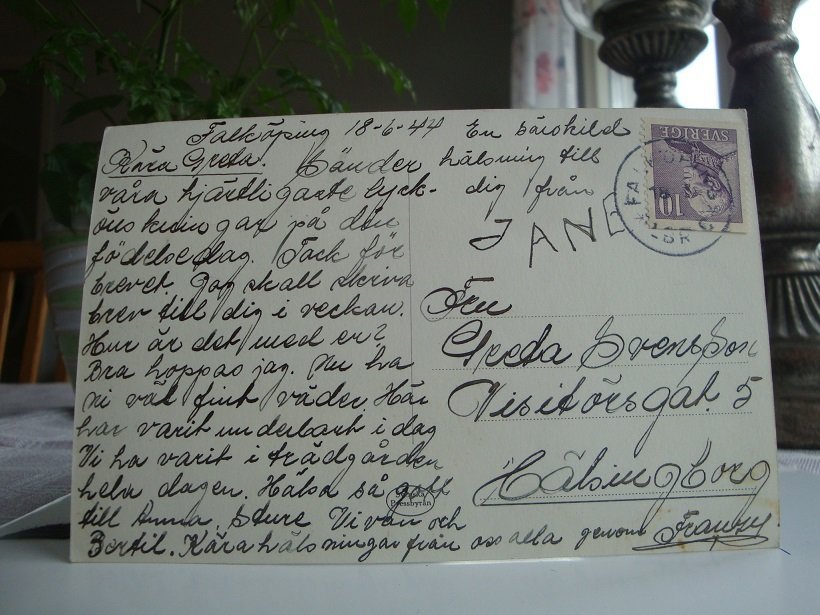 Falköping 18-6-44
Kära Greta. Sänder
våra hjärtligaste lyck-
önskningar på din
födelsedag. Tack för
brevet. Jag skall skriva
brev till dig i veckan.
Hur är det med er?
Bra hoppas jag. Nu ha
ni väl fint väder. Här
har varit underbart i dag
Vi ha varit i trädgården
hela dagen. Hälsa så gott
till Anna, Sture Vivan och
Bertil. Kära hälsningar från oss alla genom
En särskild
hälsning till
dig från
JAN
SVERIGE
10
Pressbyrån
Fru
Greta Svensson
Visitörsgat. 5
Hälsingborg